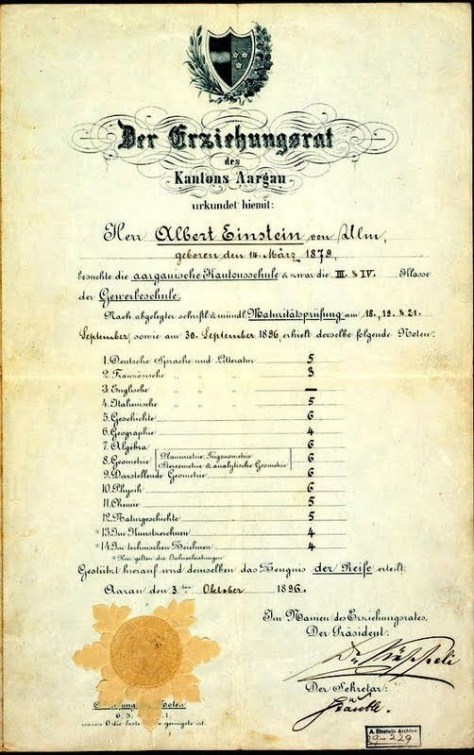 Der Erziehungsrat
des
Kantons Aargau
urkundet hiemit:
Herr Albert Einstein von Ulm,
geboren den 14. März 1879,
besuchte die aargauische Kantonsschule & zwar die III. & IV. Klasse
der Gewerbeschule.
Nach abgelegter schriftl. & mündl. Maturitätsprüfung am 18., 19. & 21.
September, sowie am 30. September 1896, erhielt derselbe folgende Noten:
1. Deutsche Sprache und Litteratur 5
2. Französische " " " 3
3. Englische " " " —
4. Italienische " " " 5
5. Geschichte 6
6. Geographie 4
7. Algebra 6
8. Geometrie Planimetrie, Trigonometrie Stereometrie & analytische Geometrie 6
9. Darstellende Geometrie 6
10. Physik 6
11. Chemie 5
12. Naturgeschichte 5
*13. Im Kunstzeichnen 4
*14. Im technischen Zeichnen 4
* Hier gelten die Jahresleistungen.
Gestützt hierauf wird demselben das Zeugnis der Reife erteilt.
Aarau den 3ten Oktober 1896.
Im Namen des Erziehungsrates,
Der Präsident:
Der Sekretär:
6, 5,
wovon 6 die beste geringste ist.
A. Einstein Archive
29-229